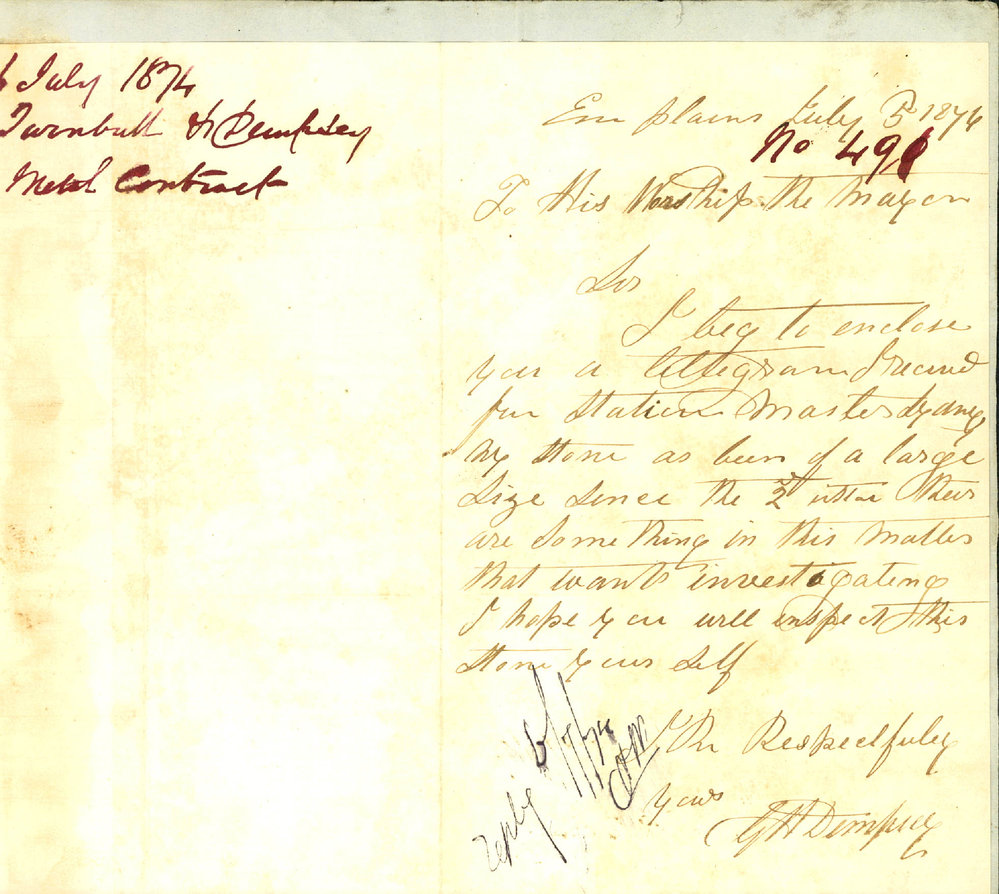 6 July 1874
Turnbull & Dempsey
Metal Contract
Emu plains July 5 1874
No 491
To His Worship the Mayor
Sir
I beg to enclose
you a tellegram I received
fom Station Master Sydney
My stone as been of a large
size since the 2 theis
are some thing in this matter
that wants investigating
I hope you will inspect this
stone your self
Respectfuley
yours
G H Dempsey
reply
6/7/74